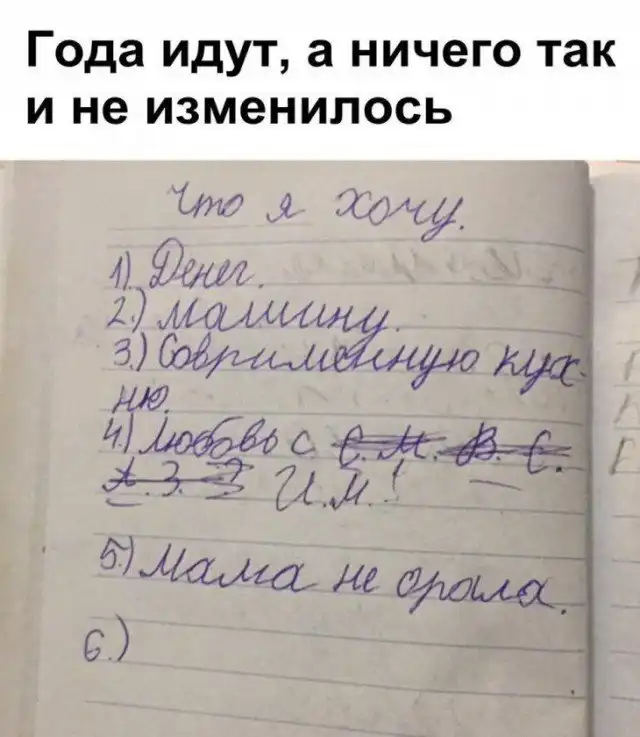 Года идут, а ничего так
и не изменилось
Что я хочу.
1) Денег.
2.) Машину.
3.) Соврименную кух-
ню.
4.) Любовь с С. М. В. С.
А. З. И. М.!
5.) Мама не орала.
6.)